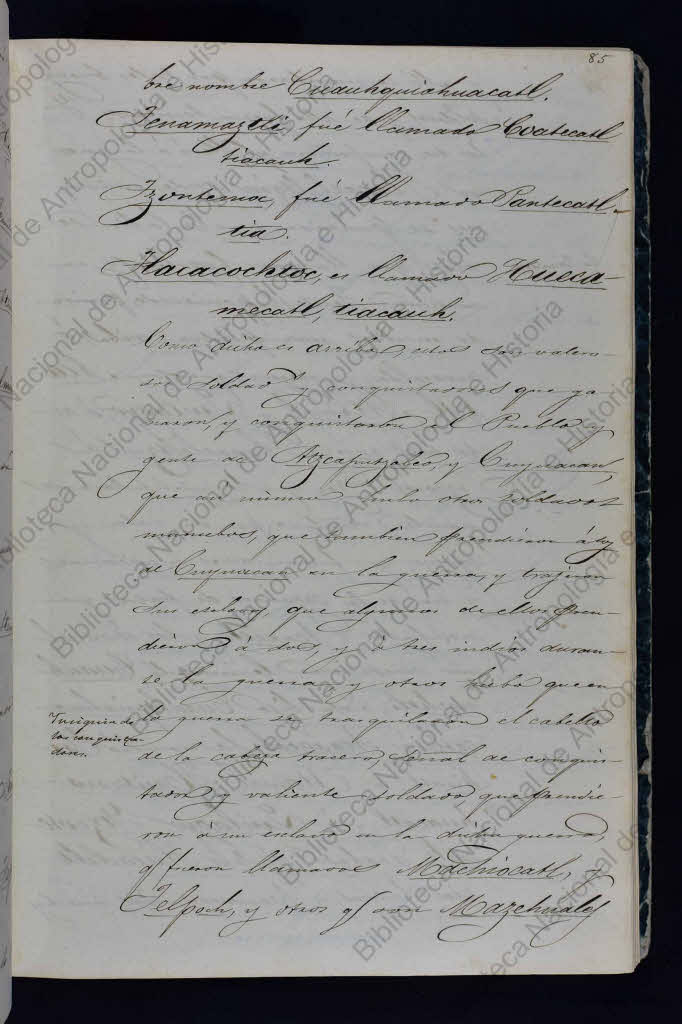 85
bre nombre Cuauhquiahuacatl.
Tenamaztli, fué llamado Coatecatl
tiacauh.
Tzontemoc, fué llamado Pantecatl-
tia.
Tlacacochtoc, es llamado Hueca-
mecatl, tiacauh.
Como dicho es arriba, estos son valero-
sos soldados y conquistadores que ga
naron, y conquistaron el Pueblo, y
gente de Atzcaputzalco, y Cuyuacan,
que sin numero hubo otros soldados
mancebos, que tambien prendieron á los
de Cuyuacan en la guerra, y trajeron
sus esclavos, que algunos de ellos pren-
dieron á dos, y á tres indios duran-
te la guerra, y otros hubo que en
la guerra se trasquilaron el cabello
de la cabeza trasera, señal de conquis-
tador y valiente soldado, que prendie-
ron á un esclavo en la dicha guerra,
q fueron llamados Machiocatl, y
Telpoch, y otros q son Mazehuales
Insignia de
los conquista-
dores.
Biblioteca Nacional de Antropología e Historia